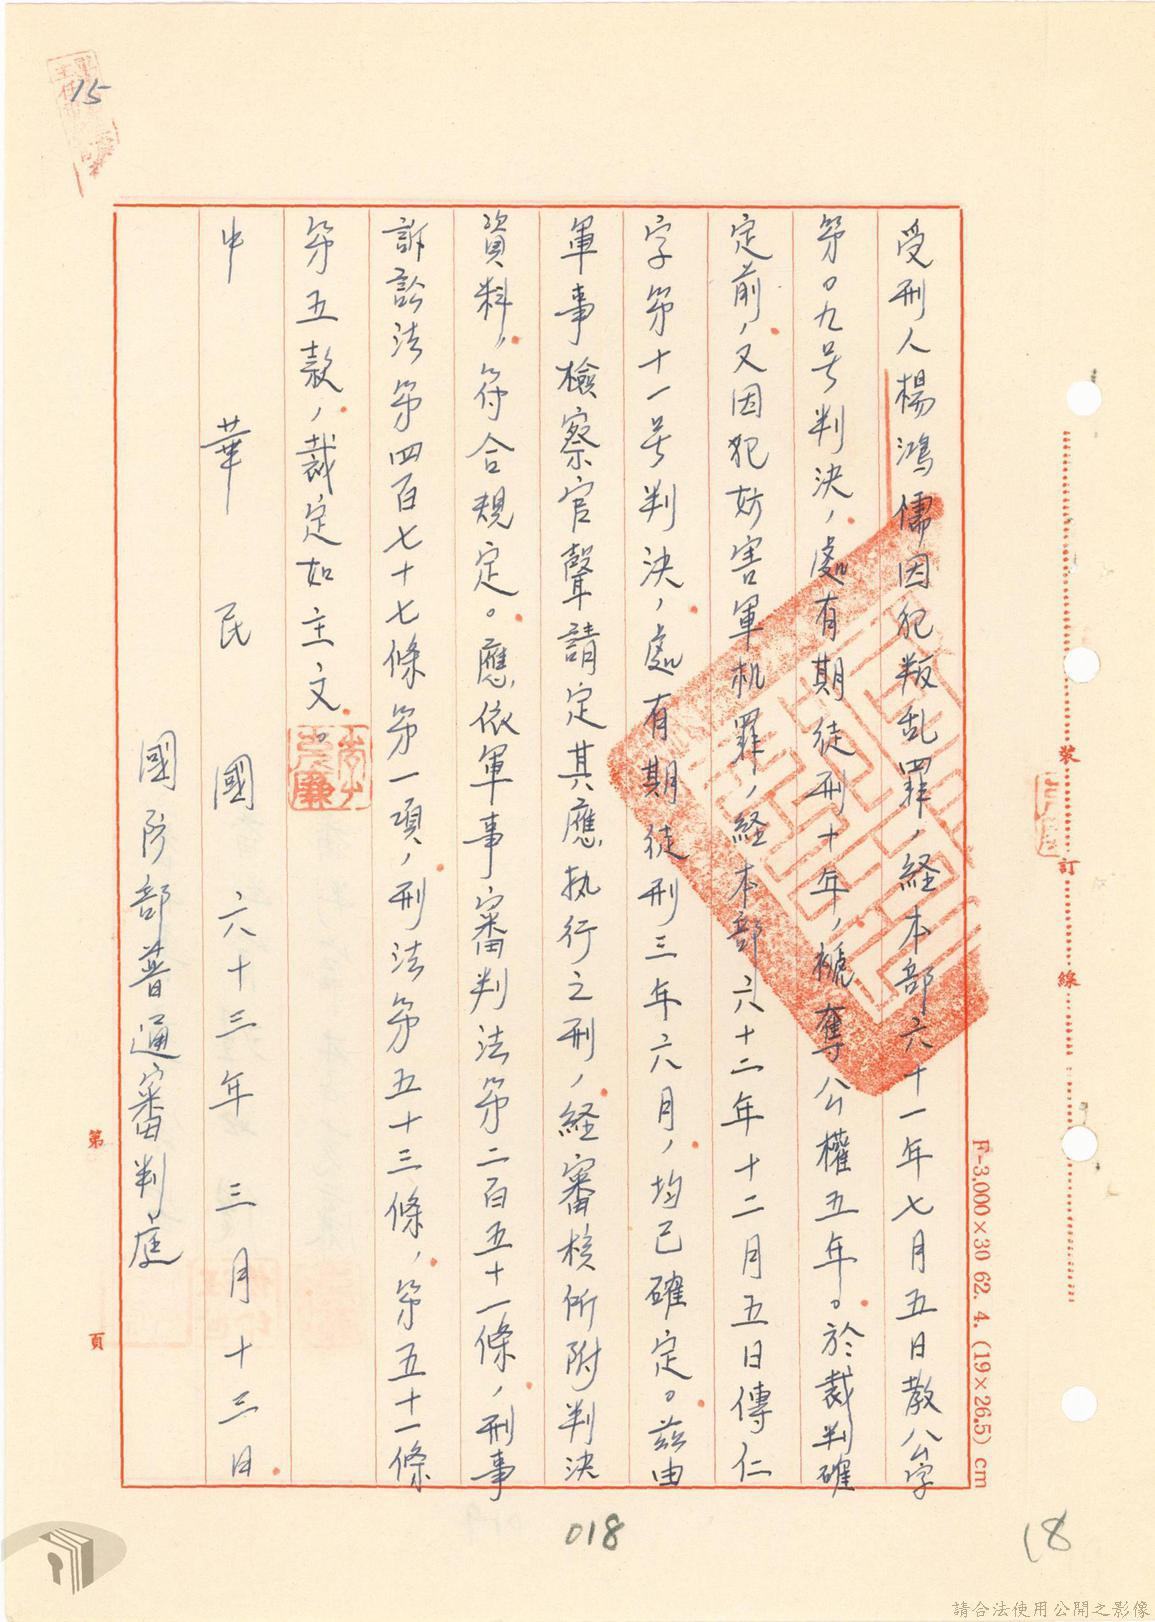 15
受刑人楊鴻儒因犯叛乱罪，経本部六十一年七月五日教公字
第0九号判决，處有期徒刑十年，褫奪公權五年。於裁判確
定前，又因犯妨害軍机罪，経本部六十二年十二月五日傳仁
字第十一号判决，處有期徒刑三年六月，均已確定。茲由
軍事檢察官聲請定其應执行之刑，経審核所附判决
資料，符合規定。應依軍事審判法第二百五十一條，刑事
訴訟法第四百七十七條第一項，刑法第五十三條，第五十一條
第五款，裁定如主文。
中華民國六十三年三月十三日
國防部普通審判庭
第 頁
裝 訂 線
F-3,000×30 62. 4. (19×26.5) cm
018
18
請合法使用公開之影像